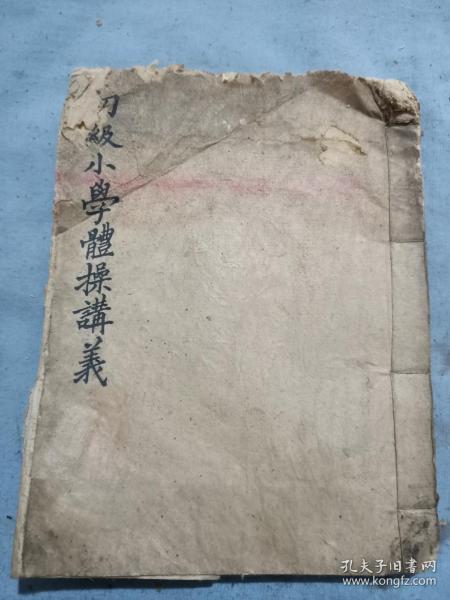 初級小學體操講義
孔夫子旧书网
www.kongfz.com